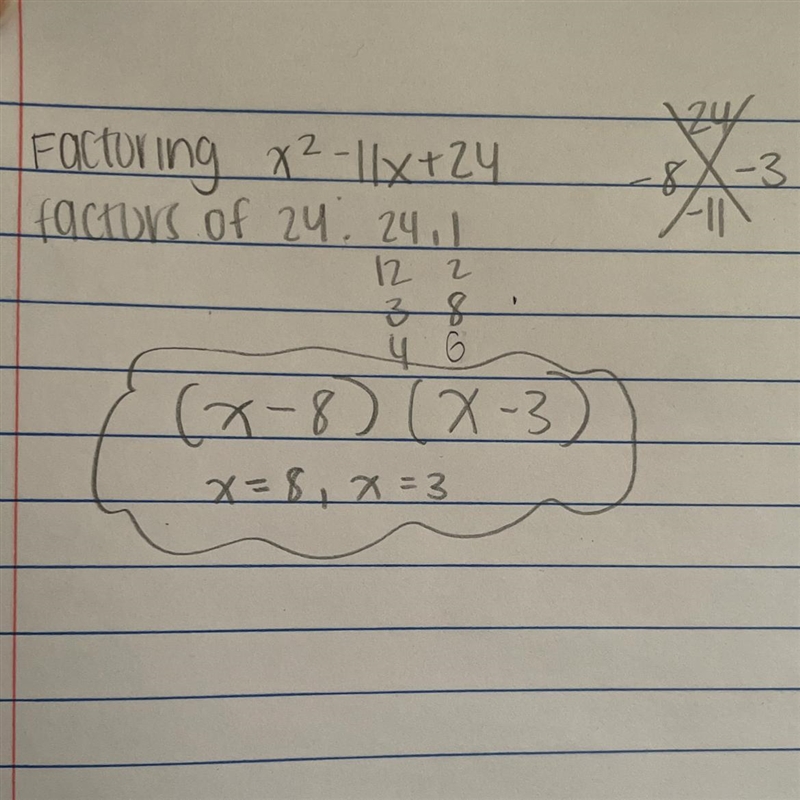 Factoring x² -11x+24
factors of 24: 24, 1
12 2
3 8
4 6
(x-8) (x-3)
x=8, x=3
24
-8 -3
-11